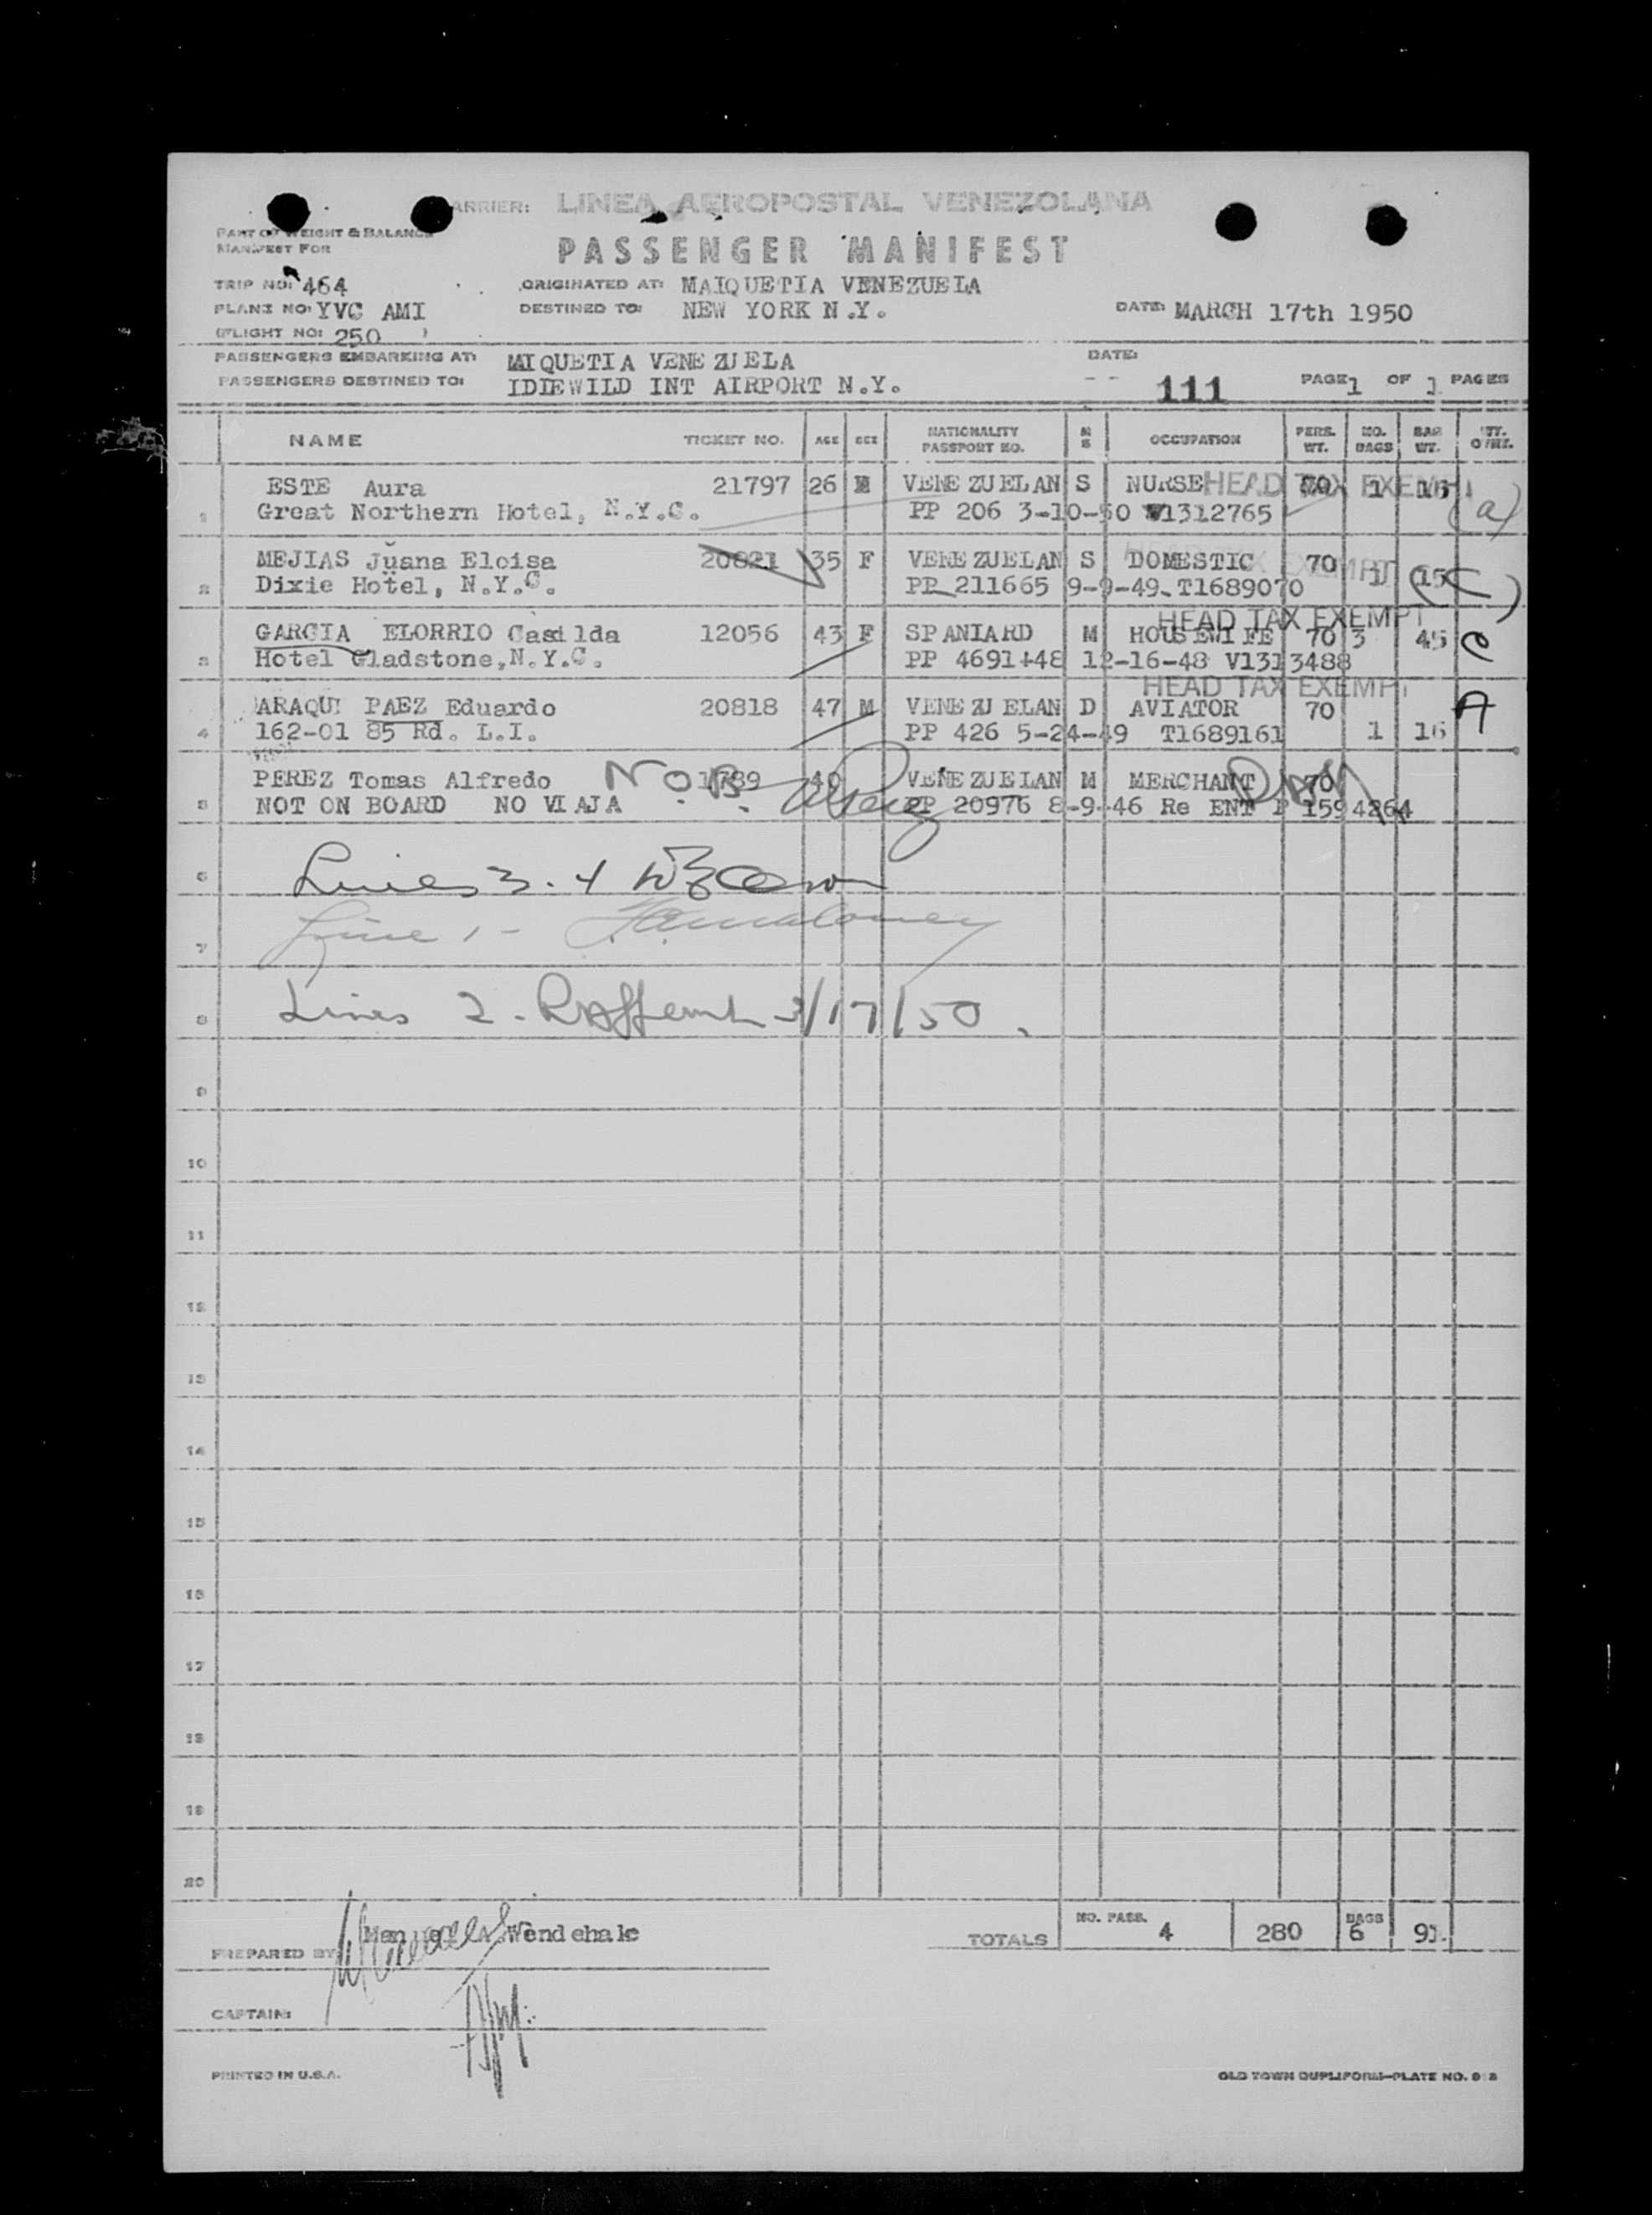 CARRIER: LINEA AEROPOSTAL VENEZOLANA
PART OF WEIGHT & BALANCE
MANIFEST FOR
PASSENGER MANIFEST
TRIP NO: 464 ORIGINATED AT: MAIQUETIA VENEZUELA
PLANE NO: YVC AMI DESTINED TO: NEW YORK N.Y. DATE: MARCH 17th 1950
(FLIGHT NO: 250 )
PASSENGERS EMBARKING AT: MIQUETIA VENEZUELA DATE:
PASSENGERS DESTINED TO: IDIEWILD INT AIRPORT N.Y. 111 PAGE 1 OF 1 PAGES
NAME TICKET NO. AGE SEX NATIONALITY PASSPORT NO. M S OCCUPATION PERS. WT. NO. BAGS BAG WT.
ESTE Aura 21797 26 VENEZUELAN S NURSE HEAD TAX EXEMPT 70 1 16 (a)
1 Great Northern Hotel, N.Y.C. PP 206 3-10-50 V1312765
MEJIAS Juana Eloisa 20821 35 F VENEZUELAN S DOMESTIC 70 1 15 (C)
2 Dixie Hotel, N.Y.C. PP 211665 9-9-49 T1689070
HEAD TAX EXEMPT
GARCIA ELORRIO Casilda 12056 43 F SPANIARD M HOUSEWIFE 70 3 45 C
3 Hotel Gladstone, N.Y.C. PP 4691+48 12-16-48 V1313488
HEAD TAX EXEMPT
ARAQUI PAEZ Eduardo 20818 47 M VENEZUELAN D AVIATOR 70 A
4 162-01 85 Rd. L.I. PP 426 5-24-49 T1689161 1 16
PEREZ Tomas Alfredo N.O.B. 1789 40 VENEZUELAN M MERCHANT 70
5 NOT ON BOARD NO VIAJA PP 20976 8-9-46 Re ENT P 1594264
6 Lines 3. 4
7 Line 1-
8 Lines 2. 3/17/50.
9
10
11
12
13
14
15
16
17
18
19
20
PREPARED BY: Wendehake TOTALS NO. PASS. 4 280 BAGS 6 91
CAPTAIN:
PRINTED IN U.S.A. OLD TOWN DUPLIFORM—PLATE NO.